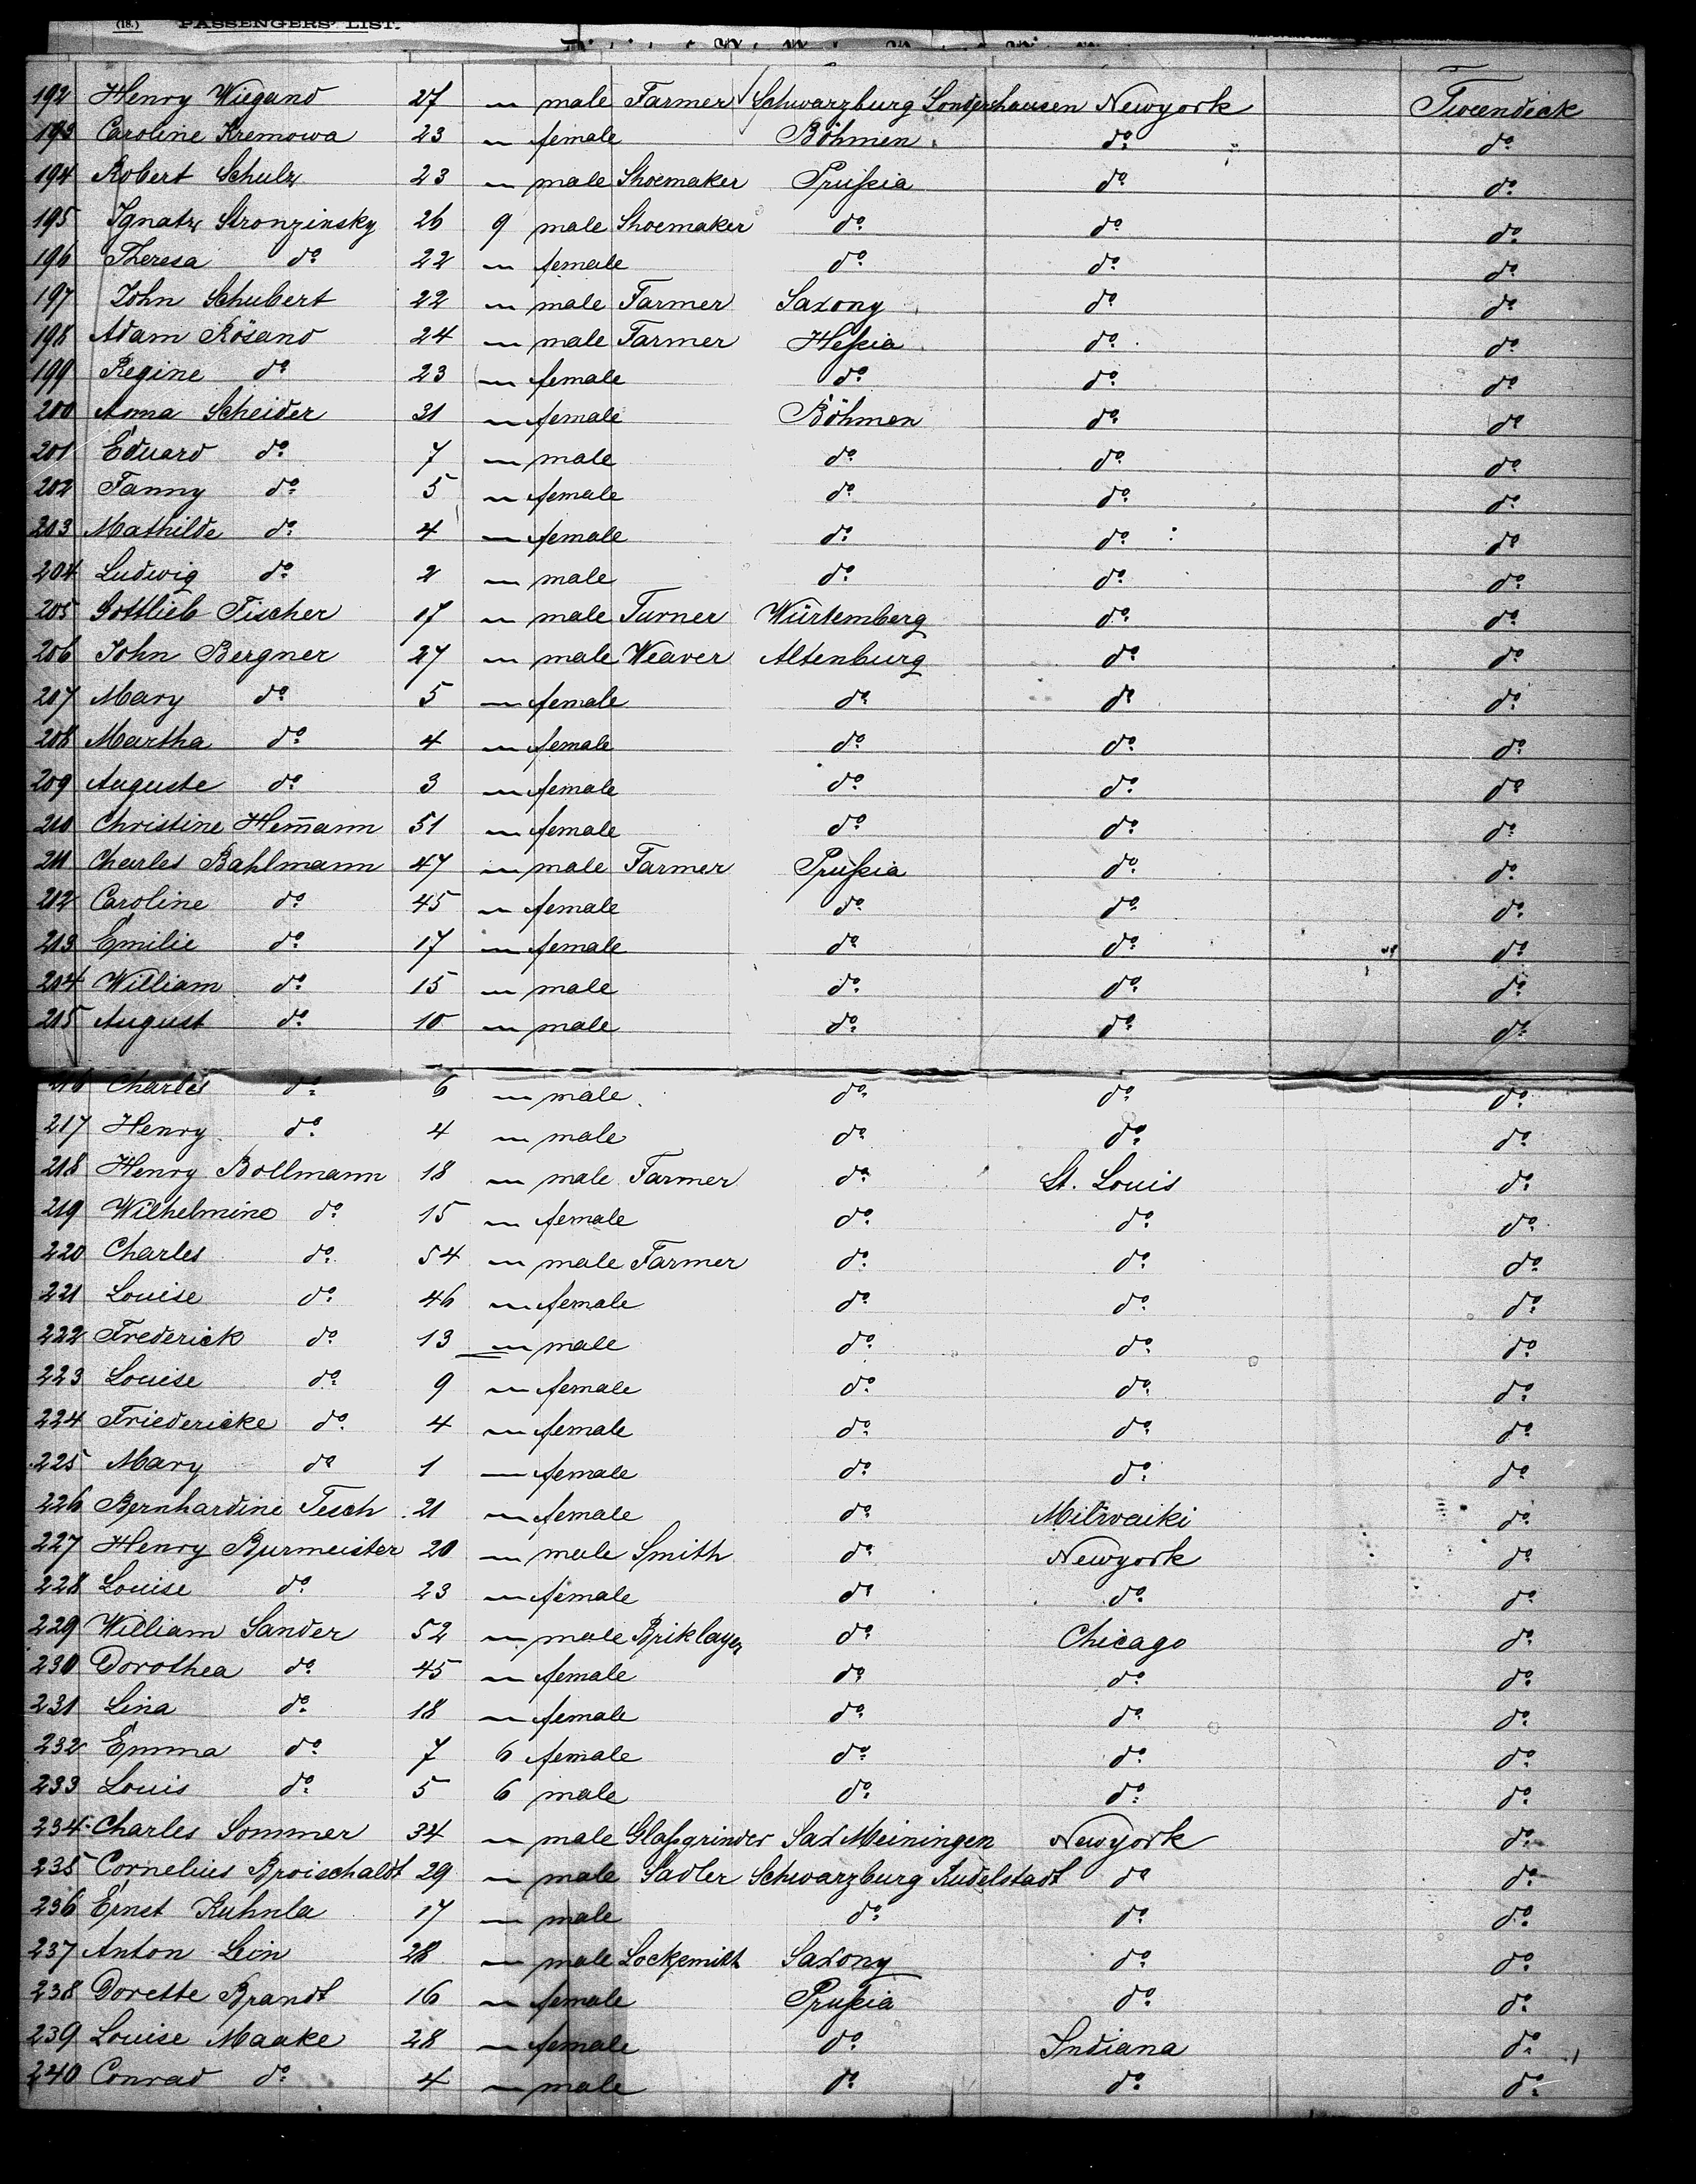 (18.) PASSENGERS' LIST.
192 Henry Wiegand 27 " male Farmer Schwarzburg Sondershausen Newyork Tweendeck
193 Caroline Kremowa 23 " female Böhmen do do
194 Robert Schulz 23 " male Shoemaker Prussia do do
195 Ignatz Stronzinsky 26 9 male Shoemaker do do do
196 Theresa do 22 " female do do do
197 John Schubert 22 " male Farmer Saxony do do
198 Adam Rösand 24 " male Farmer Hessia do do
199 Regine do 23 " female do do do
200 Anna Scheider 31 " female Böhmen do do
201 Eduard do 7 " male do do do
202 Fanny do 5 " female do do do
203 Mathilde do 4 " female do do do
204 Ludwig do 2 " male do do do
205 Gottlieb Fischer 17 " male Turner Würtemberg do do
206 John Bergner 27 " male Weaver Altenburg do do
207 Mary do 5 " female do do do
208 Martha do 4 " female do do do
209 Auguste do 3 " female do do do
210 Christine Hem̄ann 51 " female do do do
211 Charles Bahlmann 47 " male Farmer Prussia do do
212 Caroline do 45 " female do do do
213 Emilie do 17 " female do do do
204 William do 15 " male do do do
215 August do 10 " male do do do
216 Charles do 6 " male do do do
217 Henry do 4 " male do do do
218 Henry Bollmann 18 " male Farmer do St. Louis do
219 Wilhelmine do 15 " female do do do
220 Charles do 54 " male Farmer do do do
221 Louise do 46 " female do do do
222 Frederick do 13 " male do do do
223 Louise do 9 " female do do do
224 Friedericke do 4 " female do do do
225 Mary do 1 " female do do do
226 Bernhardine Tesch 21 " female do Milwaiki do
227 Henry Burmeister 20 " male Smith do Newyork do
228 Louise do 23 " female do do do
229 William Sander 52 " male Briklayer do Chicago do
230 Dorothea do 45 " female do do do
231 Lina do 18 " female do do do
232 Emma do 7 6 female do do do
233 Louis do 5 6 male do do do
234 Charles Sommer 34 " male Glassgrinder Sax Meiningen Newyork do
235 Cornelius Broischaldt 29 " male Sadler Schwarzburg Rudelstadt do do
236 Ernst Kuhnla 17 " male do do do
237 Anton Lein 28 " male Locksmith Saxony do do
238 Dorette Brandt 16 " female Prussia do do
239 Louise Maake 28 " female do Indiana do
240 Conrad do 4 " male do do do